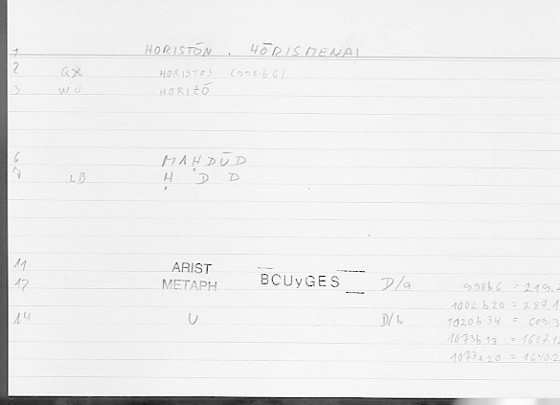 1 HORISTŌN , HŌRISMENAI
2 GX HORISTOS (998b6)
3 WU HORIZŌ
6 MAḤDŪD
8 LB Ḥ D D
11 ARIST
12 METAPH BCUyGES D/a 998b6 = 219.
1002b20 = 287.1
14 U D/b 1020b34 = 609.
1073b13 = 1657.12
1077a20 = 1650.2